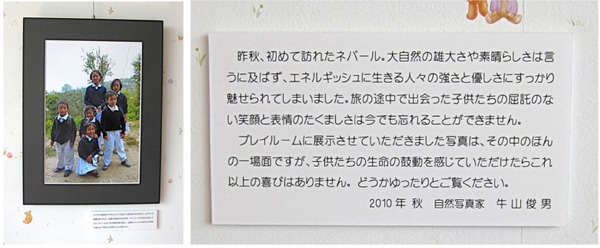 昨秋、初めて訪れたネパール。大自然の雄大さや素晴らしさは言
うに及ばず、エネルギッシュに生きる人々の強さと優しさにすっかり
魅せられてしまいました。旅の途中で出会った子供たちの屈託のな
い笑顔と表情のたくましさは今でも忘れることができません。
プレイルームに展示させていただきました写真は、その中のほん
の一場面ですが、子供たちの生命の鼓動を感じていただけたらこれ
以上の喜びはありません。どうかゆったりとご覧ください。
2010年 秋 自然写真家 牛山俊男